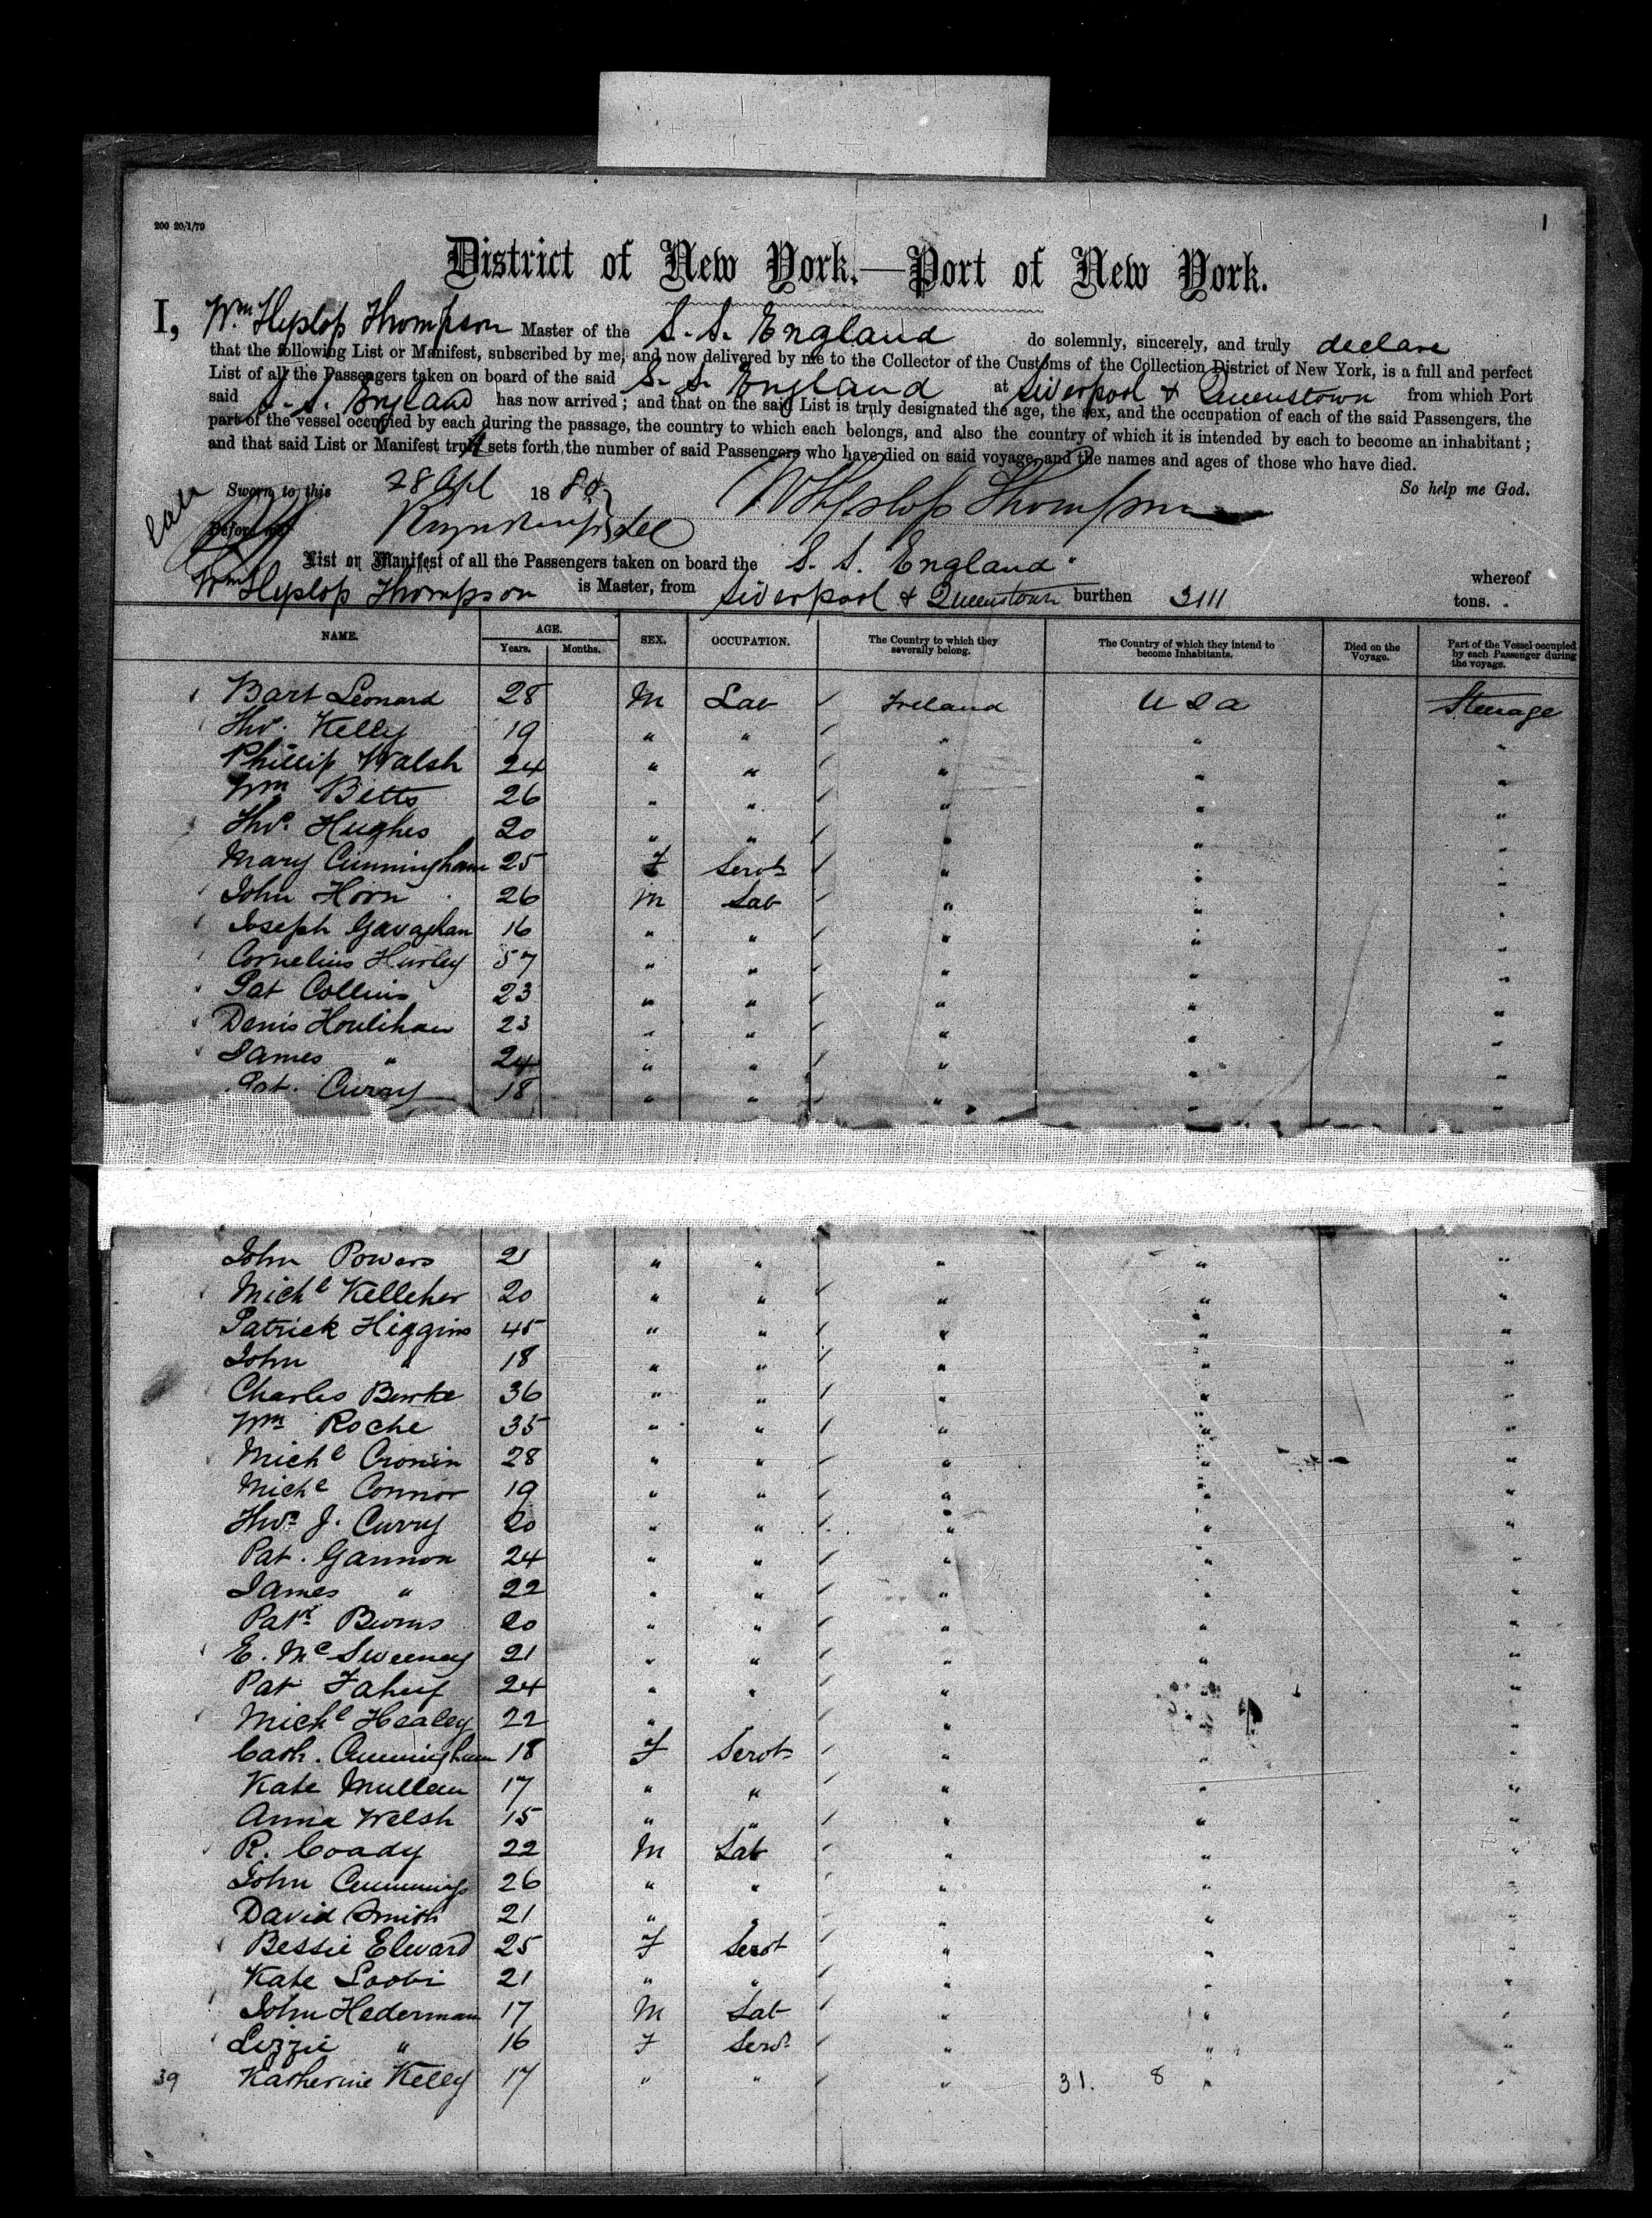 200 20/1/79
1
District of New York.—Port of New York.
I, Wm Hyslop Thompson Master of the S. S. England do solemnly, sincerely, and truly declare
that the following List or Manifest, subscribed by me, and now delivered by me to the Collector of the Customs of the Collection District of New York, is a full and perfect
List of all the Passengers taken on board of the said S. S. England at Liverpool & Queenstown from which Port
said S. S. England has now arrived; and that on the said List is truly designated the age, the sex, and the occupation of each of the said Passengers, the
part of the vessel occupied by each during the passage, the country to which each belongs, and also the country of which it is intended by each to become an inhabitant;
and that said List or Manifest truly sets forth the number of said Passengers who have died on said voyage, and the names and ages of those who have died.
Sworn to this 28 Apl 1880 So help me God.
WHyslop Thompson
Before me
List or Manifest of all the Passengers taken on board the S. S. England whereof
Wm Hyslop Thompson is Master, from Liverpool & Queenstown burthen 3111 tons.
NAME. AGE. Years. Months. SEX. OCCUPATION. The Country to which they severally belong. The Country of which they intend to become Inhabitants. Died on the Voyage. Part of the Vessel occupied by each Passenger during the voyage.
Bart Leonard 28 M Lab Ireland U S a Steerage
Thos. Kelly 19 " " " " "
Phillip Walsh 24 " " " " "
Wm Betts 26 " " " " "
Thos. Hughes 20 " " " " "
Mary Cunningham 25 F Servt " " "
John Horn 26 M Lab " " "
Joseph Gavaghan 16 " " " " "
Cornelius Hurley 57 " " " " "
Pat Collins 23 " " " " "
Denis Houlihan 23 " " " " "
James " 24 " " " " "
Pat. Curry 18 " " " " "
John Powers 21 " " " " "
Michl Kelleher 20 " " " " "
Patrick Higgins 45 " " " " "
John " 18 " " " " "
Charles Burke 36 " " " " "
Wm Roche 35 " " " " "
Michl Cronin 28 " " " " "
Michl Connor 19 " " " " "
Thos J. Curry 20 " " " " "
Pat. Gannon 24 " " " " "
James " 22 " " " " "
Patk Burns 20 " " " " "
E. McSweeney 21 " " " " "
Pat Fahey 24 " " " " "
Michl Healey 22 " " " " "
Cath. Cunningham 18 F Servt " " "
Kate Mullen 17 " " " " "
Anna Welsh 15 " " " " "
R. Coady 22 M Lab " " "
John Cummings 26 " " " " "
David Smith 21 " " " " "
Bessie Elward 25 F Servt " " "
Kate Loobi 21 " " " " "
John Hederman 17 M Lab " " "
Lizzie " 16 F Servt " " "
39 Katherine Kelly 17 " " " 31. 8 " "